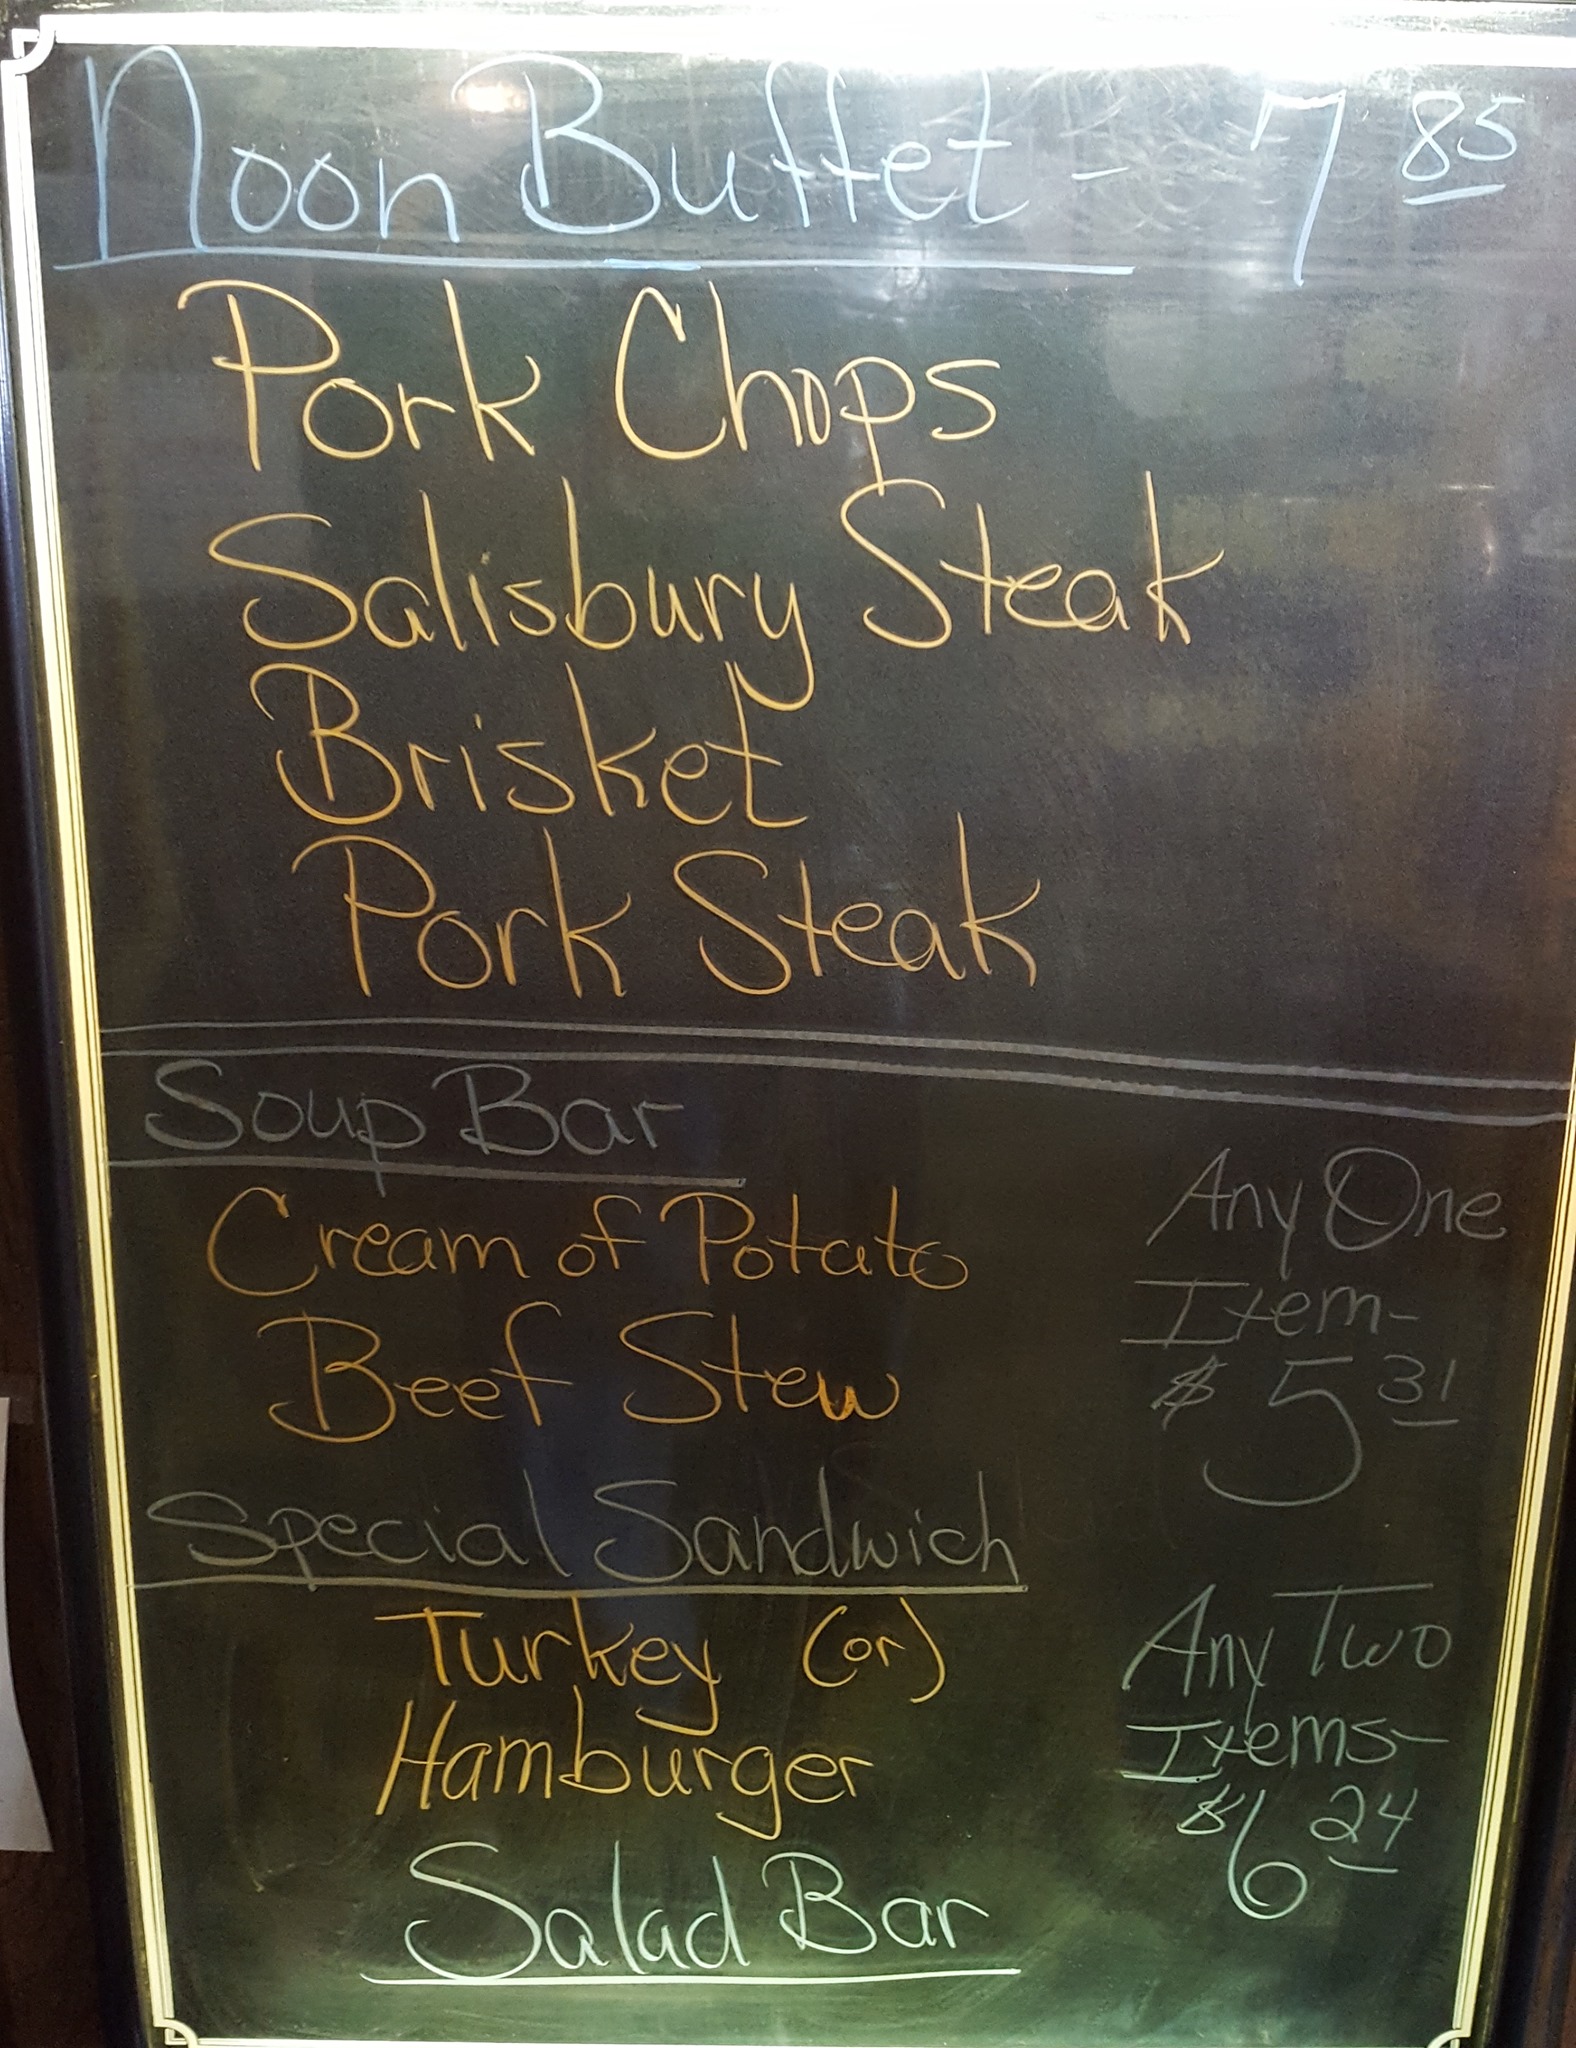 Noon Buffet - 7 85
Pork Chops
Salisbury Steak
Brisket
Pork Steak
Soup Bar
Cream of Potato
Beef Stew
Any One
Item-
$ 5 31
Special Sandwich
Turkey (or)
Hamburger
Salad Bar
Any Two
Items-
$6 24